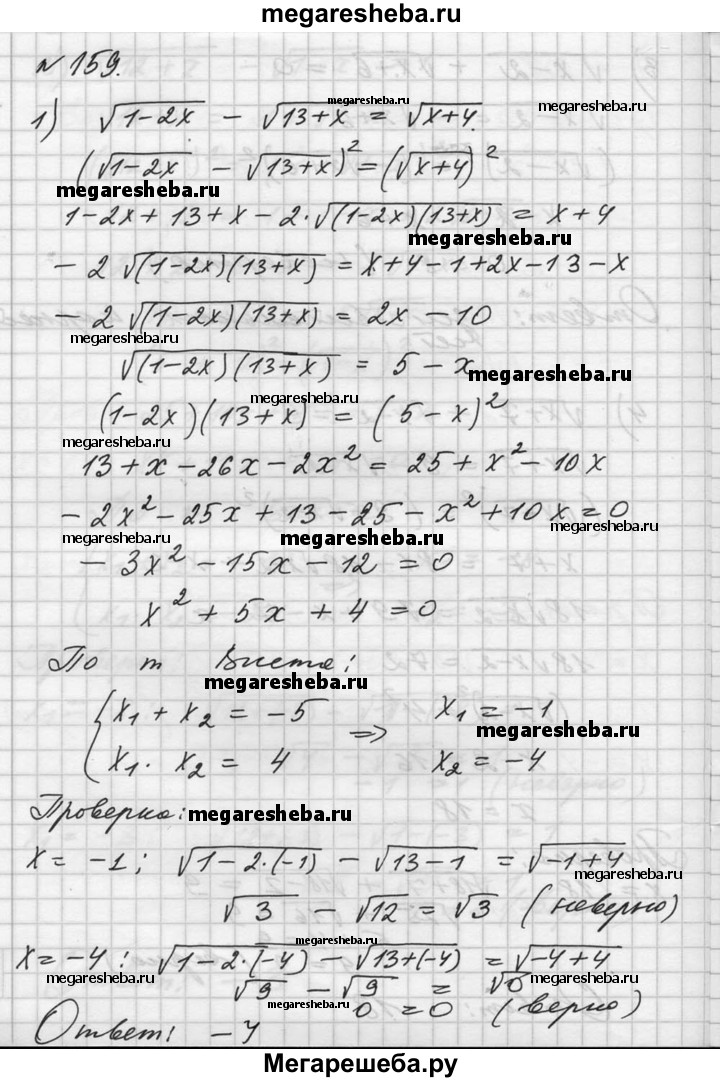 megaresheba.ru
№ 159.
1) √(1-2x) - √(13+x) = √(x+4).
megaresheba.ru megaresheba.ru
(√(1-2x) - √(13+x))² = (√(x+4))²
megaresheba.ru megaresheba.ru
1-2x+13+x-2·√((1-2x)(13+x)) = x+4
megaresheba.ru
-2√((1-2x)(13+x)) = x+4-1+2x-13-x
-2√((1-2x)(13+x)) = 2x-10
megaresheba.ru
√((1-2x)(13+x)) = 5-x
megaresheba.ru
megaresheba.ru
(1-2x)(13+x) = (5-x)²
megaresheba.ru
13+x-26x-2x² = 25+x²-10x
-2x²-25x+13-25-x²+10x=0
megaresheba.ru megaresheba.ru megaresheba.ru
-3x²-15x-12=0
x²+5x+4=0
По т Виета:
megaresheba.ru
{x₁+x₂=-5 => x₁=-1
megaresheba.ru
x₁·x₂=4 x₂=-4
Проверка: megaresheba.ru
x=-1; √(1-2·(-1)) - √(13-1) = √(-1+4)
megaresheba.ru
√3 - √12 = √3 (неверно)
x=-4: √(1-2·(-4)) - √(13+(-4)) = √(-4+4)
megaresheba.ru megaresheba.ru megaresheba.ru
√9 - √9 = √0
0=0 (верно)
megaresheba.ru
Ответ: -4
Мегарешеба.ру